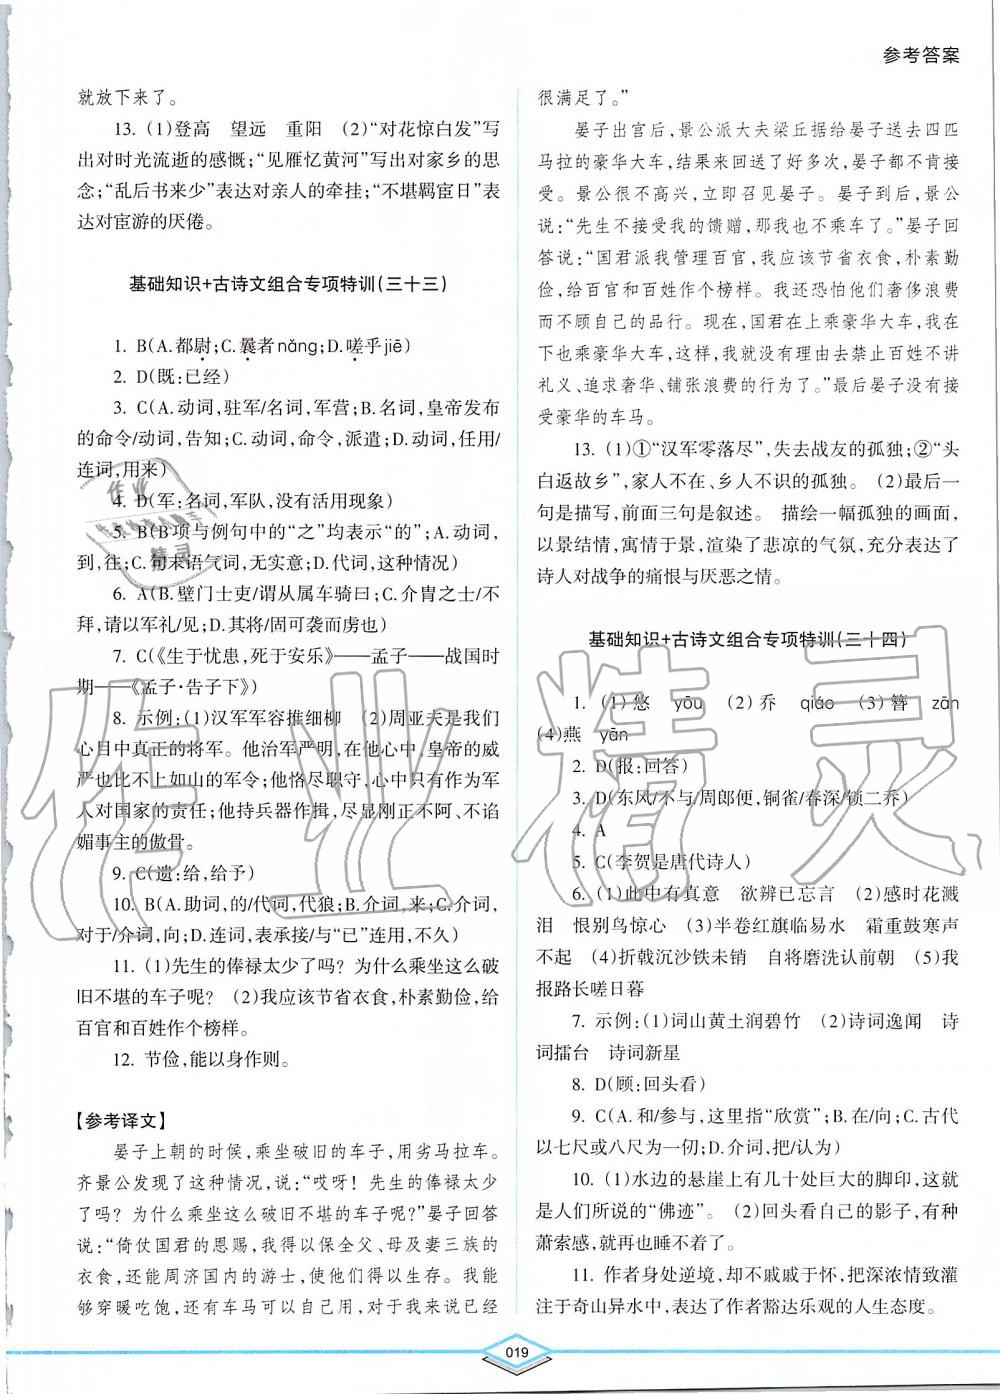 参考答案
就放下来了。
13. (1)登高　望远　重阳　(2)“对花惊白发”写
出对时光流逝的感慨;“见雁忆黄河”写出对家乡的思
念;“乱后书来少”表达对亲人的牵挂;“不堪羁宦日”表
达对宦游的厌倦。
基础知识+古诗文组合专项特训(三十三)
1. B(A.都尉;C.曩者nǎng;D.嗟乎jiē)
2. D(既:已经)
3. C(A.动词,驻军/名词,军营;B.名词,皇帝发布
的命令/动词,告知;C.动词,命令,派遣;D.动词,任用/
连词,用来)
4. D(军:名词,军队,没有活用现象)
5. B(B项与例句中的“之”均表示“的”;A.动词,
到,往;C.句末语气词,无实意;D.代词,这种情况)
6. A(B.壁门士吏/谓从属车骑曰;C.介胄之士/不
拜,请以军礼/见;D.其将/固可袭而虏也)
7. C(《生于忧患,死于安乐》——孟子——战国时
期——《孟子·告子下》)
8. 示例:(1)汉军军容推细柳　(2)周亚夫是我们
心目中真正的将军。他治军严明,在他心中,皇帝的威
严也比不上如山的军令;他恪尽职守,心中只有作为军
人对国家的责任;他持兵器作揖,尽显刚正不阿、不谄
媚事主的傲骨。
9. C(遗:给,给予)
10. B(A.助词,的/代词,代狼;B.介词,来;C.介词,
对于/介词,向;D.连词,表承接/与“已”连用,不久)
11. (1)先生的俸禄太少了吗? 为什么乘坐这么破
旧不堪的车子呢? (2)我应该节省衣食,朴素勤俭,给
百官和百姓作个榜样。
12. 节俭,能以身作则。
【参考译文】
晏子上朝的时候,乘坐破旧的车子,用劣马拉车。
齐景公发现了这种情况,说:“哎呀! 先生的俸禄太少
了吗? 为什么乘坐这么破旧不堪的车子呢?”晏子回答
说:“倚仗国君的恩赐,我得以保全父、母及妻三族的
衣食,还能周济国内的游士,使他们得以生存。我能
够穿暖吃饱,还有车马可以自己用,对于我来说已经
很满足了。”
晏子出宫后,景公派大夫梁丘据给晏子送去四匹
马拉的豪华大车,结果来回送了好多次,晏子都不肯接
受。景公很不高兴,立即召见晏子。晏子到后,景公
说:“先生不接受我的馈赠,那我也不乘车了。”晏子回
答说:“国君派我管理百官,我应该节省衣食,朴素勤
俭,给百官和百姓作个榜样。我还恐怕他们奢侈浪费
而不顾自己的品行。现在,国君在上乘豪华大车,我在
下也乘豪华大车,这样,我就没有理由去禁止百姓不讲
礼义、追求奢华、铺张浪费的行为了。”最后晏子没有接
受豪华的车马。
13. (1)①“汉军零落尽”,失去战友的孤独;②“头
白返故乡”,家人不在、乡人不识的孤独。 (2)最后一
句是描写,前面三句是叙述。 描绘一幅孤独的画面,
以景结情,寓情于景,渲染了悲凉的气氛,充分表达了
诗人对战争的痛恨与厌恶之情。
基础知识+古诗文组合专项特训(三十四)
1. (1)悠　yōu　(2)乔　qiáo　(3)簪　zān
(4)燕　yān
2. D(报:回答)
3. D(东风/不与/周郎便,铜雀/春深/锁二乔)
4. A
5. C(李贺是唐代诗人)
6. (1)此中有真意　欲辨已忘言　(2)感时花溅
泪　恨别鸟惊心　(3)半卷红旗临易水　霜重鼓寒声
不起　(4)折戟沉沙铁未销　自将磨洗认前朝　(5)我
报路长嗟日暮
7. 示例:(1)词山黄土润碧竹　(2)诗词逸闻　诗
词擂台　诗词新星
8. D(顾:回头看)
9. C(A.和/参与,这里指“欣赏”;B.在/向;C.古代
以七尺或八尺为一仞;D.介词,把/认为)
10. (1)水边的悬崖上有几十处巨大的脚印,这就
是人们所说的“佛迹”。 (2)回头看自己的影子,有种
萧索感,就再也睡不着了。
11. 作者身处逆境,却不戚戚于怀,把深浓情致灌
注于奇山异水中,表达了作者豁达乐观的人生态度。
019
作业精灵